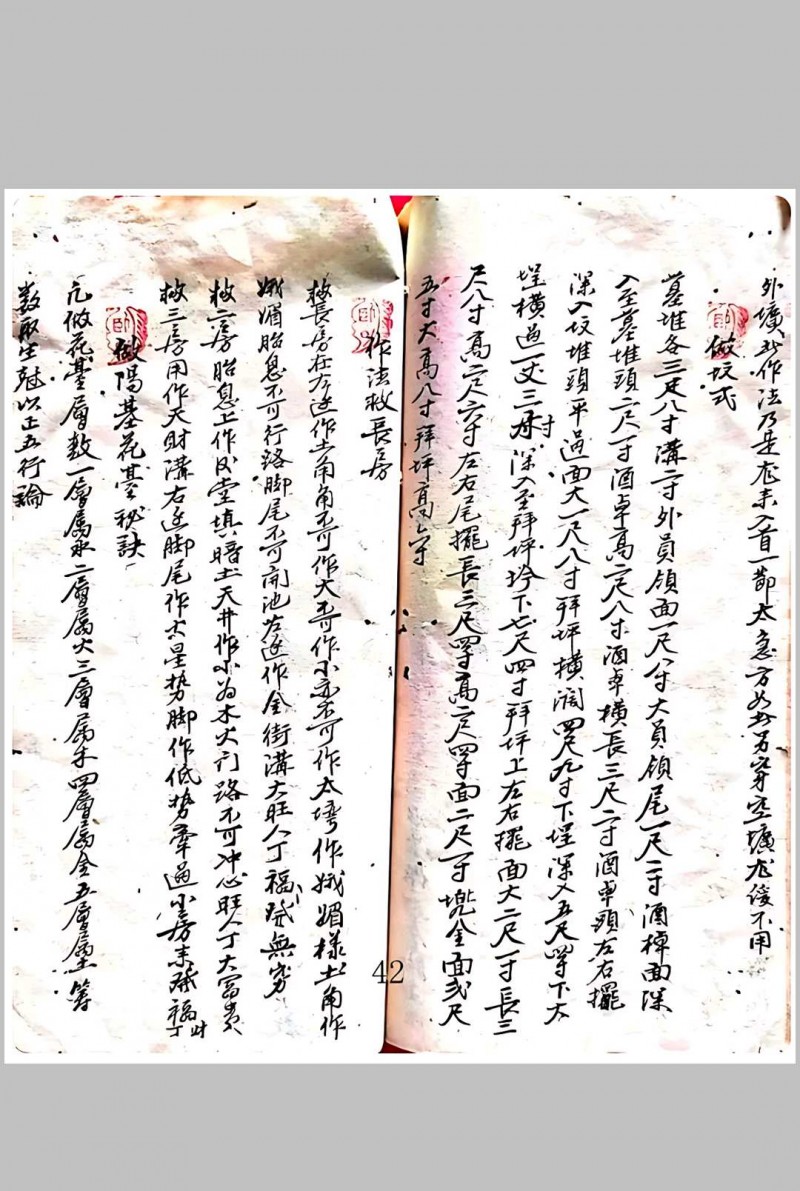 外壙此作法乃是龙未入首一節太急方如此另穿空壙龙後不用
做坟式
墓堆各三尺八寸溝二寸外員領面一尺八寸大員領尾一尺二寸酒棹面深
入至墓堆頭二尺一寸酒卓高二尺八寸酒卓横長三尺二寸酒卓頭左右擺
深入坟堆頭平過面大一尺八寸拜坪横濶四尺九寸下埕深入五尺四寸下大
埕横過一丈三寸深入至拜坪坽下七尺四寸拜坪上左右擺面大二尺一寸長三
尺八寸高二尺六寸左右尾擺長三尺四寸高二尺四寸面二尺一寸塊金面弍尺
五寸大高八寸拜坪高
作法救長房
救長房在左边作土角不可作大不可作小亦不可作太灣作娥媚樣土角作
娥媚胎息不可行路脚尾不可開池左边作金街溝大旺人丁福祿無穷
救二房胎息上作后堂填暗土天井作小為木火门路不可冲心旺人丁大富貴
救三房用作天財溝右边脚尾作太星势脚作低势牽過小房来發福丁財
做陽基花臺秘訣
凡做花臺層数一層属水二層属火三層属木四層属金五層属土筭
数取生尅以正五行論
42